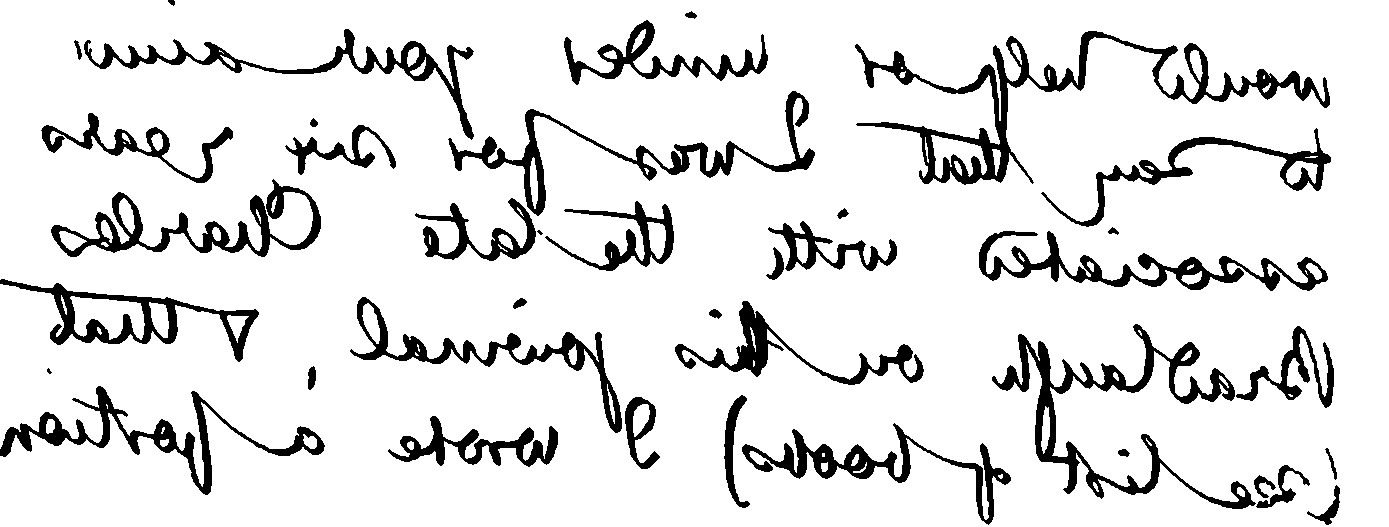 would help or minister your aims
to say that I was for six years
associated with the late Charles
Bradlaugh on this journal, & that
(see list of books) I wrote a portion